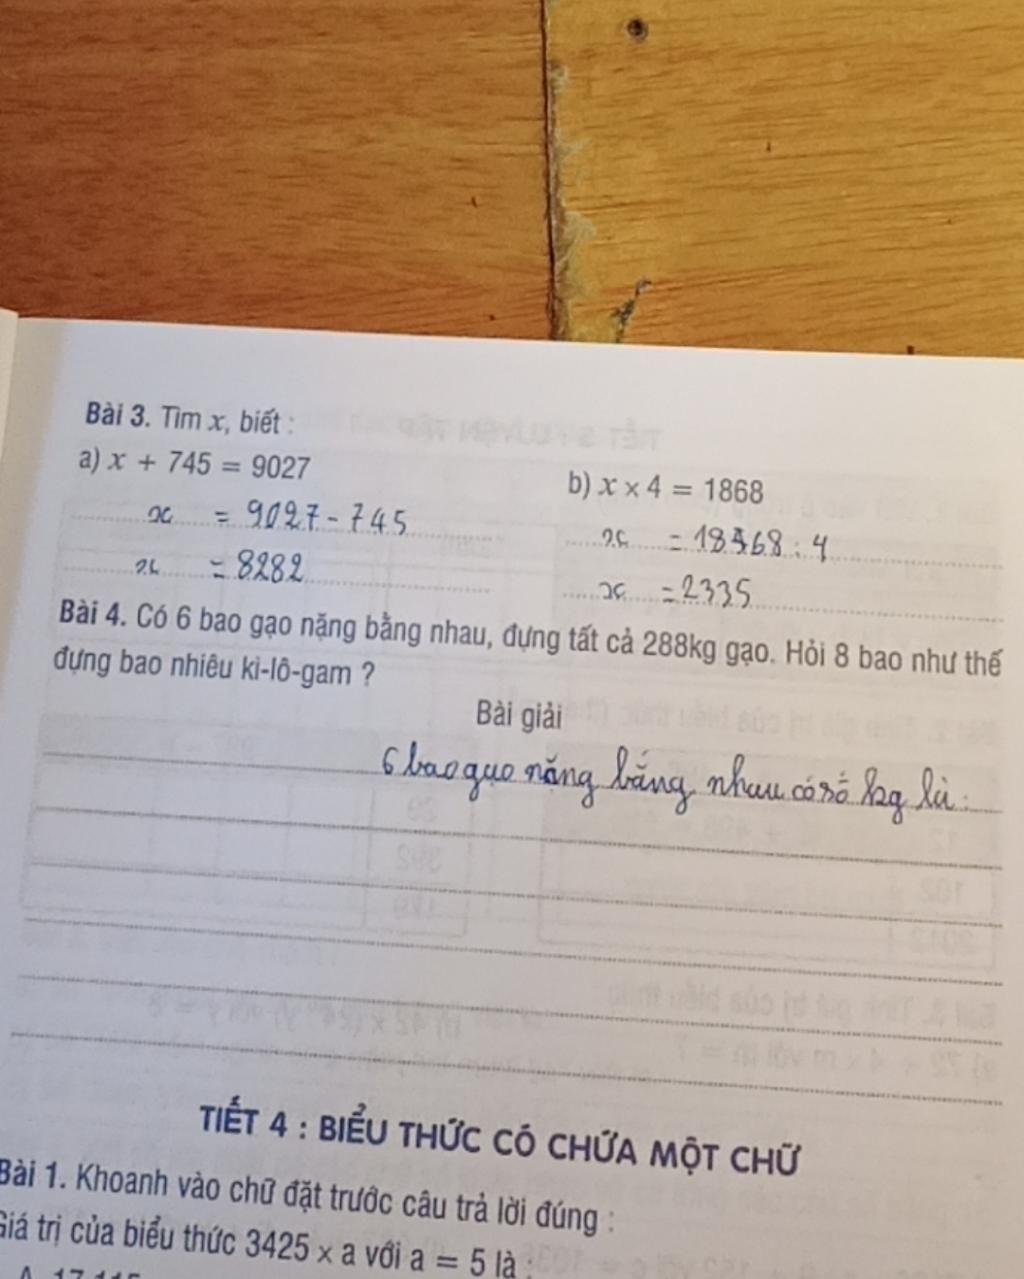 Bài 3. Tìm x, biết :
a) x + 745 = 9027
b) x × 4 = 1868
x = 9027 - 745
x = 18468 : 4
x = 8282
x = 2335
Bài 4. Có 6 bao gạo nặng bằng nhau, đựng tất cả 288kg gạo. Hỏi 8 bao như thế
đựng bao nhiêu ki-lô-gam ?
Bài giải
6 bao gạo nặng bằng nhau có số kg là :
TIẾT 4 : BIỂU THỨC CÓ CHỨA MỘT CHỮ
Bài 1. Khoanh vào chữ đặt trước câu trả lời đúng :
Giá trị của biểu thức 3425 × a với a = 5 là :